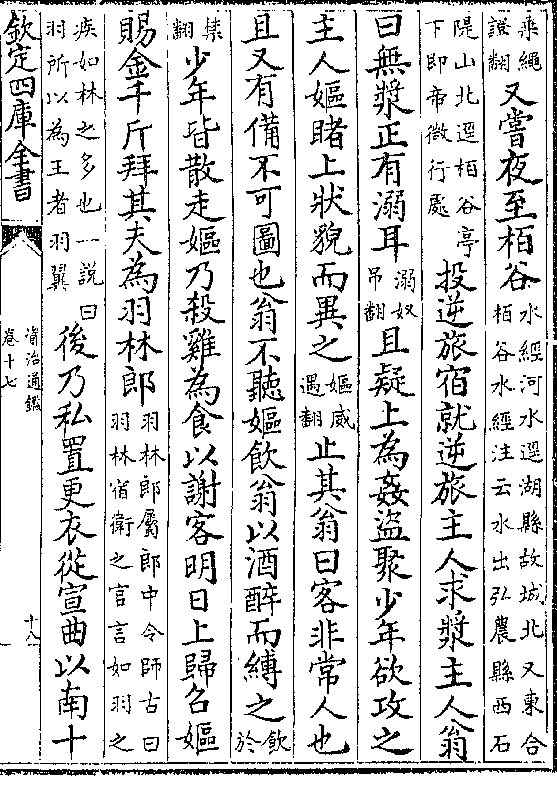 乘繩證翻又嘗夜至栢谷水經河水逕湖縣故城北又東合栢谷水經注云水出弘農縣西石
隄山北逕栢谷亭下即帝微行處投逆旅宿就逆旅主人求漿主人翁
曰無漿正有溺耳溺奴吊翻且疑上為姦盜聚少年欲攻之
主人嫗睹上狀貌而異之嫗威遇翻止其翁曰客非常人也
且又有備不可圖也翁不聽嫗飲翁以酒醉而縛之飲於
禁翻少年皆散走嫗乃殺雞為食以謝客明日上歸召嫗
賜金千斤拜其夫為羽林郎羽林郎屬郎中令師古曰羽林宿衛之官言如羽之
疾如林之多也一說曰羽所以為王者羽翼後乃私置更衣從宣曲以南十
欽定四庫全書
資治通鑑
卷十七
十八